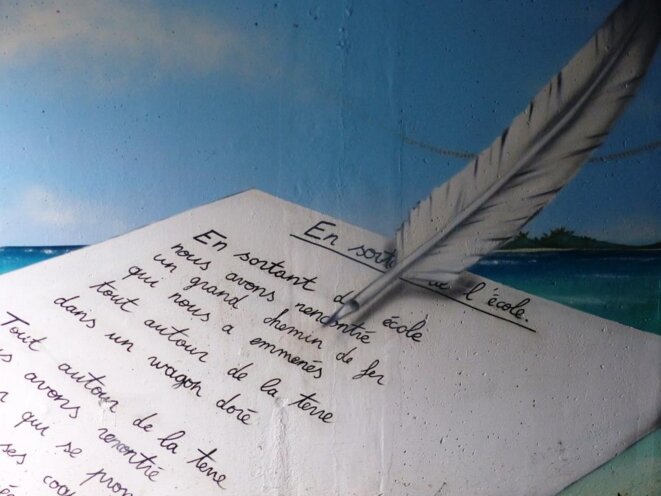 En sort de l'école.
En sortant de école
nous avons rencontrié
un grand chemin de fer
qui nous a emmenés
tout autour de la terre
dans un wagon doré
Tout autour de la terre
avons rencontrié
qui se
ses